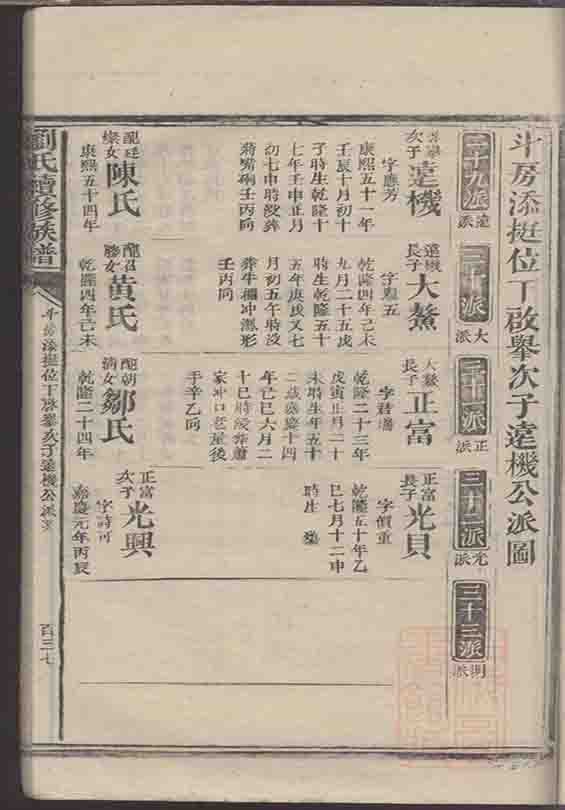 斗房添挺位丁啟舉次子遠機公派圖
二十九派
遠派
三十派
大派
三十一派
正派
三十二派
光派
三十三派
明派
啟舉
次子
遠機
字應芳
康熙五十一年
壬辰十月初十
子時生乾隆十
七年壬申正月
初七申時歿葬
壬丙向
配廷
燦女
陳氏
康熙五十四年
遠機
長子
大鰲
乾隆四年己未
九月二十五戌
時生乾隆五十
五年庚戌又七
月初五午時歿
葬牛欄冲瀝形
壬丙向
配召
勝女
黃氏
乾隆四年己未
大鰲
長子
正富
字君
乾隆二十三年
戊寅正月二十
未時生年五十
二歲嘉慶十四
年己巳六月二
十巳時歿葬蕭
家冲口老屋後
山辛乙向
配朝
滴女
鄒氏
乾隆二十四年
正富
長子
光貝
字價重
乾隆五十年乙
巳七月十二申
時生
正富
次子
光興
字詩可
嘉慶元年丙辰
劉氏續修族譜
斗房添挺位丁啟舉次子遠機公派
百三七